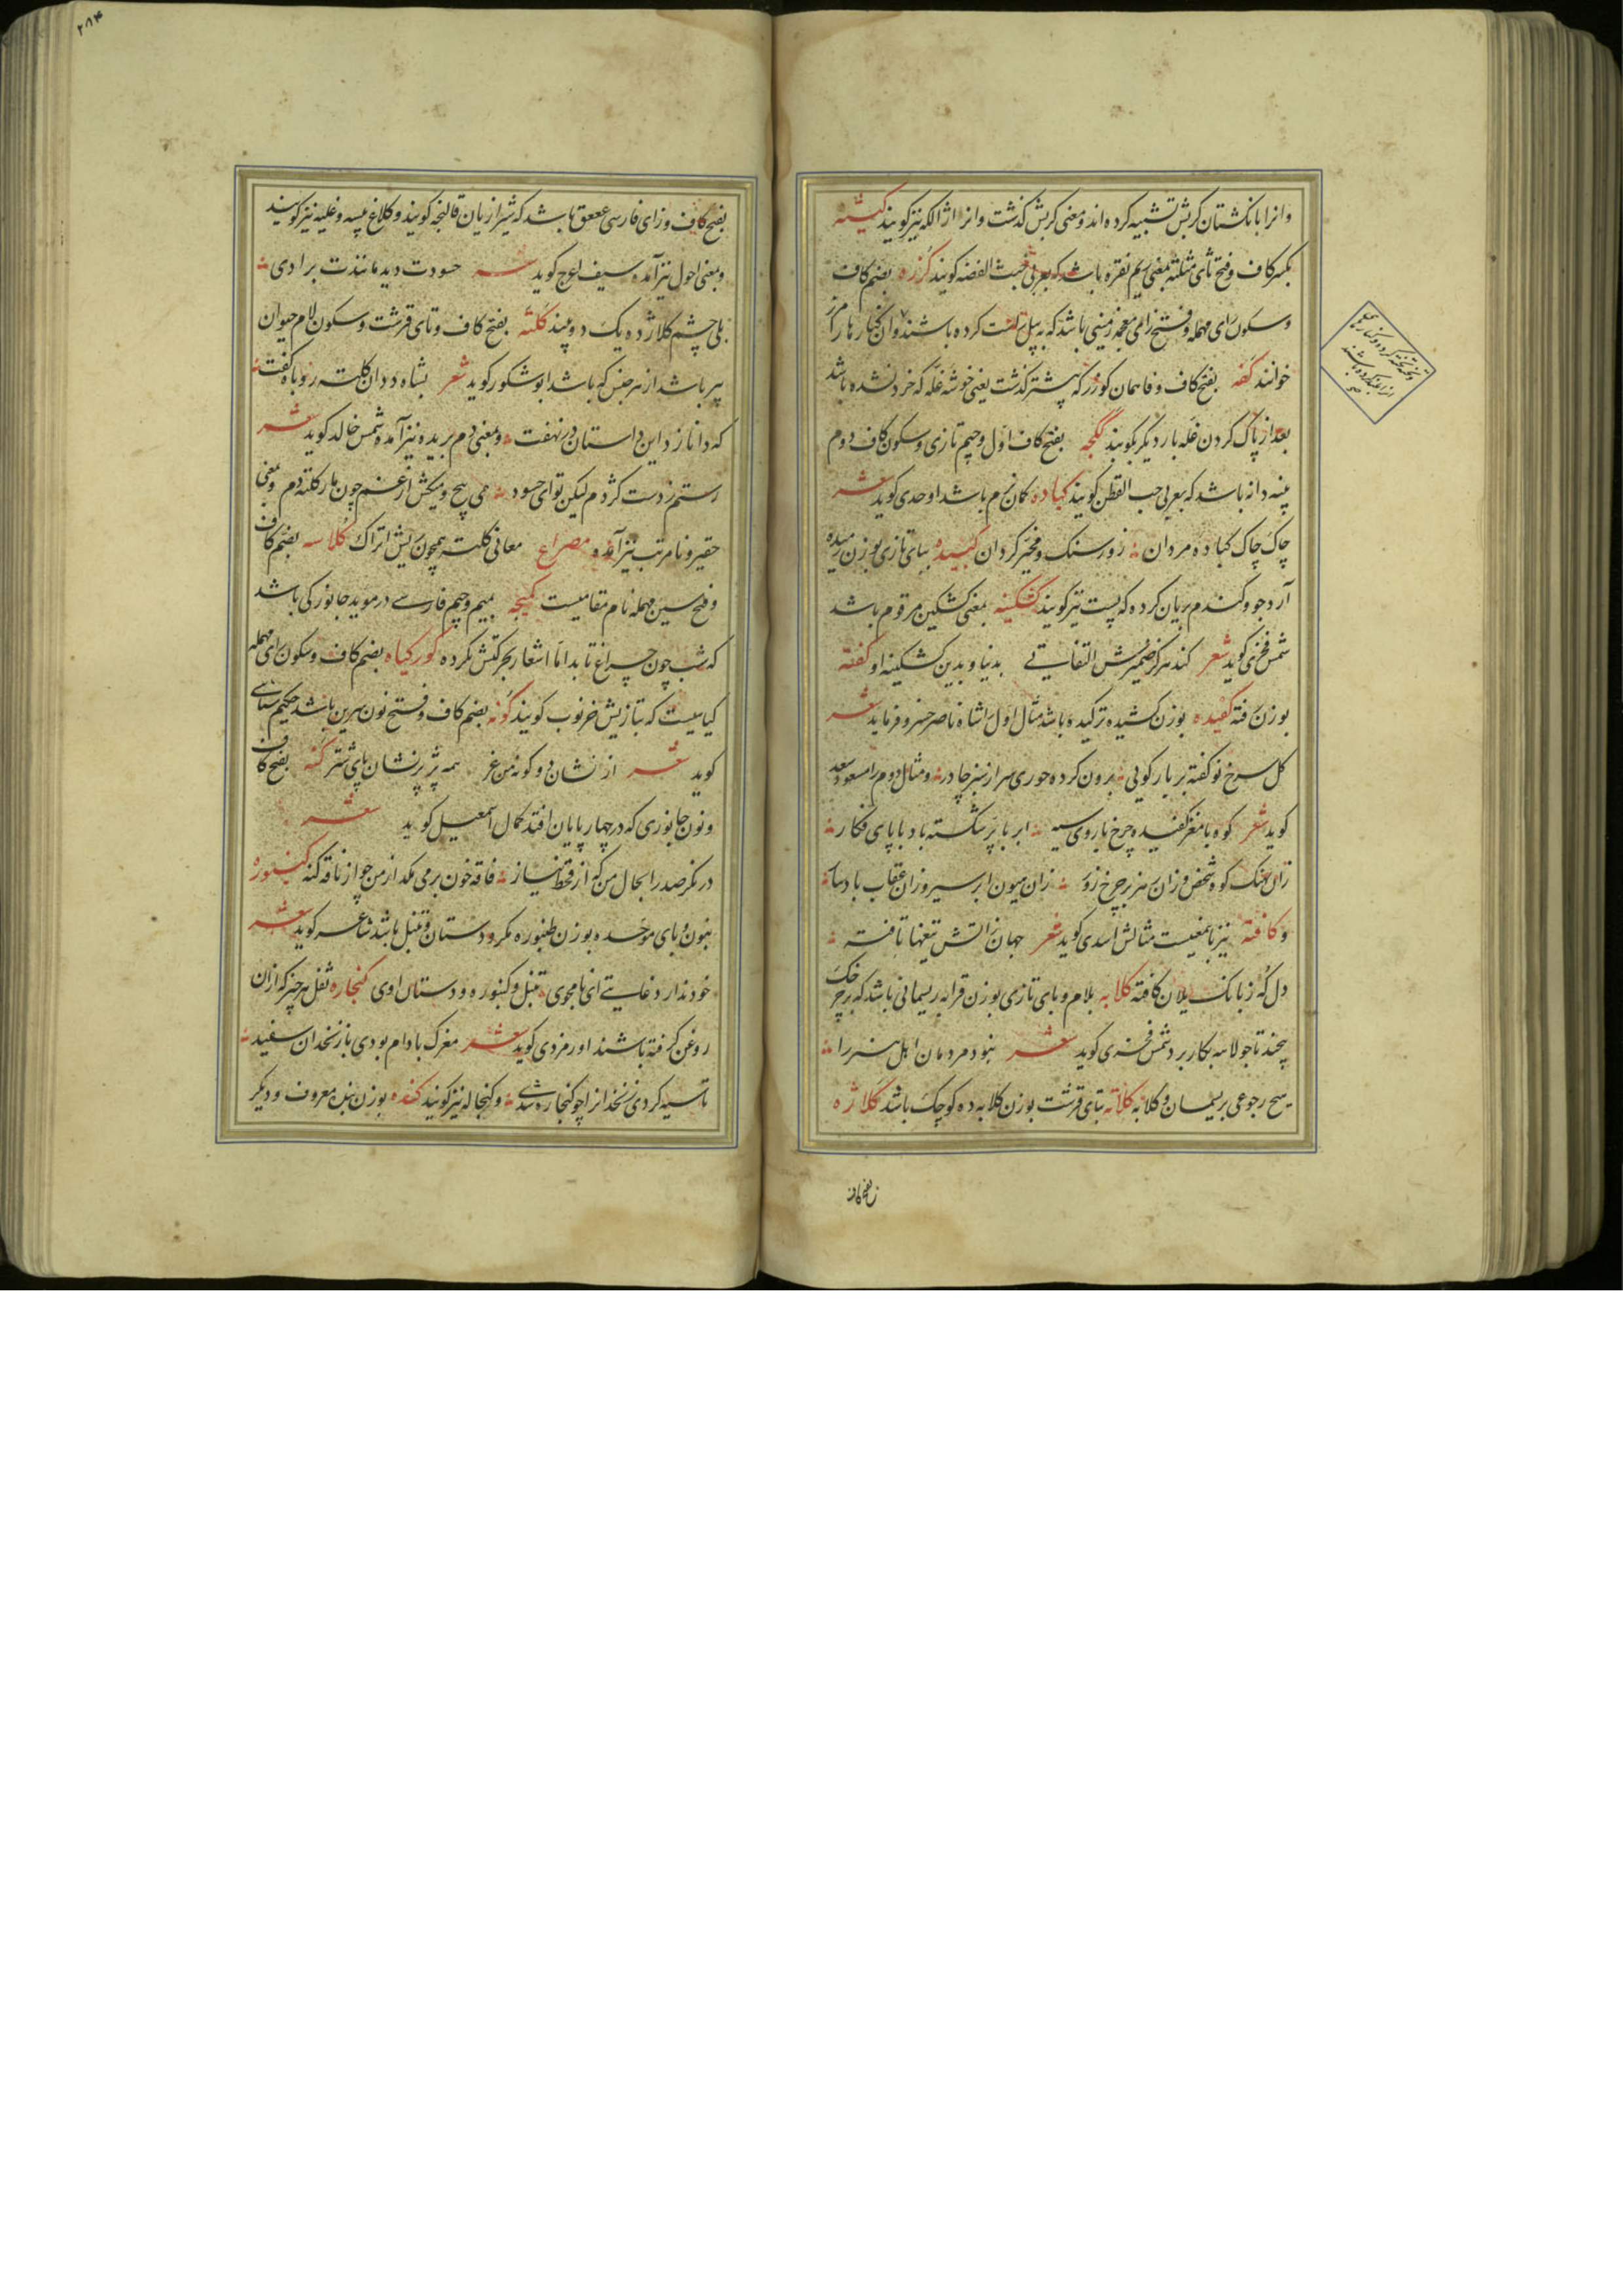 وانرا بانکشتان کربش تشبیه کرده اند و معنی کربش کذشت وانرا اژالکه نیز کویند کیثه
بکسر کاف و فتح ثای مثلثه بمعنی سیم نقره باشد که بعربی خبث الفضه کویند کرزه بضم کاف
وسکون رای مهمله و فتح زای معجمه زمینی باشد که به بیل راست کرده باشند و آن کنار ها را مرز
خوانند کفه بفتح کاف و فا همان کوزر که پیشتر کذشت یعنی خوشه غله که خرد نشده باشد
بعد از پاک کردن غله بار دیکر بکوبند کجکه بفتح کاف اول و جیم تازی و سکون کاف دوم
پنبه دانه باشد که بعربی حب القطن کویند کباده کمان نرم باشد اوحدی کوید شعر
چاک چاک کباده مردان زور سنک و مخیر کردان کبیده ببای تازی بوزن رمیده
آرد جو و کندم بریان کرده که پست نیز کویند کشکینه بمعنی کشکین مرقوم باشد
شمس فخری کوید شعر کند هرکز ضمیرش التفاتی بدنیا و بدین کشکینه او کفته
بوزن رفته کفیده بوزن کشیده ترکیده باشد مثال اول شاه ناصر خسرو فرماید شعر
کل سرخ نو کفته بر بار کویی برون کرده حوری سر از سبز چادر و مثال دوم را مسعود سعد
کوید شعر کوه با مغز کفیده چرخ با روی سیه ابر با پر شکسته باد با پای فکار
زان نهنک کوه شخص و زان هزبر چرخ زور زان میون ابر سیر و زان عقاب بادسار
و کافته نیز بامعنیست مثالش اسدی کوید شعر جهان ز آتش تیغها تافته
دل که ز بانک یلان کافته کلابه بلام و بای تازی بوزن قرابه ریسمانی باشد که بر چرخک
پیچند تا جولاهه بکار برد شمس فخری کوید شعر نبود مردمان اهل هنر را
هیچ رجوعی بریسمان و کلابه کلاته بتای قرشت بوزن کلابه ده کوچک باشد کلاژه
بفتح کاف
۲۸۴
بفتح کاف و زای فارسی عقعق باشد که شیرازیان قالنجه کویند و کلاغ پیسه و غلبه نیز کویند
و بمعنی احول نیز آمده سیف اعرج کوید شعر حسودت دید مانندت برادی
بلی چشم کلاژه یک دو بیند کلته بفتح کاف و تای قرشت و سکون لام حیوان
پیر باشد از هر جنس که باشد ابو شکور کوید شعر بشاه ددان کلته روباه کفت
که دانا زد این داستان در نهفت و بمعنی دم بریده نیز آمده شمس خالد کوید شعر
رستم ز دست کژدم لیکن تو ای حسود می پیچ و میکش از غم چون مار کلته دم و بمعنی
حقیر و نامرتب نیز آمده مصراع معانی کلته همچون ریش اتراک کلاسه بضم کاف
و فتح سین مهمله نام مقامیست کمیجه بمیم و جیم فارسی در موید جانورکی باشد
که شب چون چراغ تابد اما اشعار بحرکتش نکرده کورکیاه بضم کاف و سکون رای مهمله
کیاهیست که بتازیش خرنوب کویند کونه بضم کاف و فتح نون سرین باشد حکیم سنایی
کوید شعر از نشان دو کونه من غر همه پژ پر نشان پای شتر کنه بفتح کاف
و نون جانوری که در چهارپایان افتد کمال اسمعیل کوید شعر
در نکر صدرا بحال من که از قحط نیاز فاقه خون بر می مکد از من چو از ناقه کنه کنبوره
بنون و بای موحده بوزن طنبوره مکر و دستان و تنبل باشد شاعر کوید شعر
خود ندارد غایتی ای نامجوی تنبل و کنبوره و دستان اوی کنجاره ثفل هر چیز که از آن
روغن کرفته باشند اورمزدی کوید شعر مغزک بادام بودی با زنخدان سفید
تا سیه کردی زنخدانرا چو کنجاره شدی و کنجاله نیز کویند کنده بوزن بنده معروف و دیکر